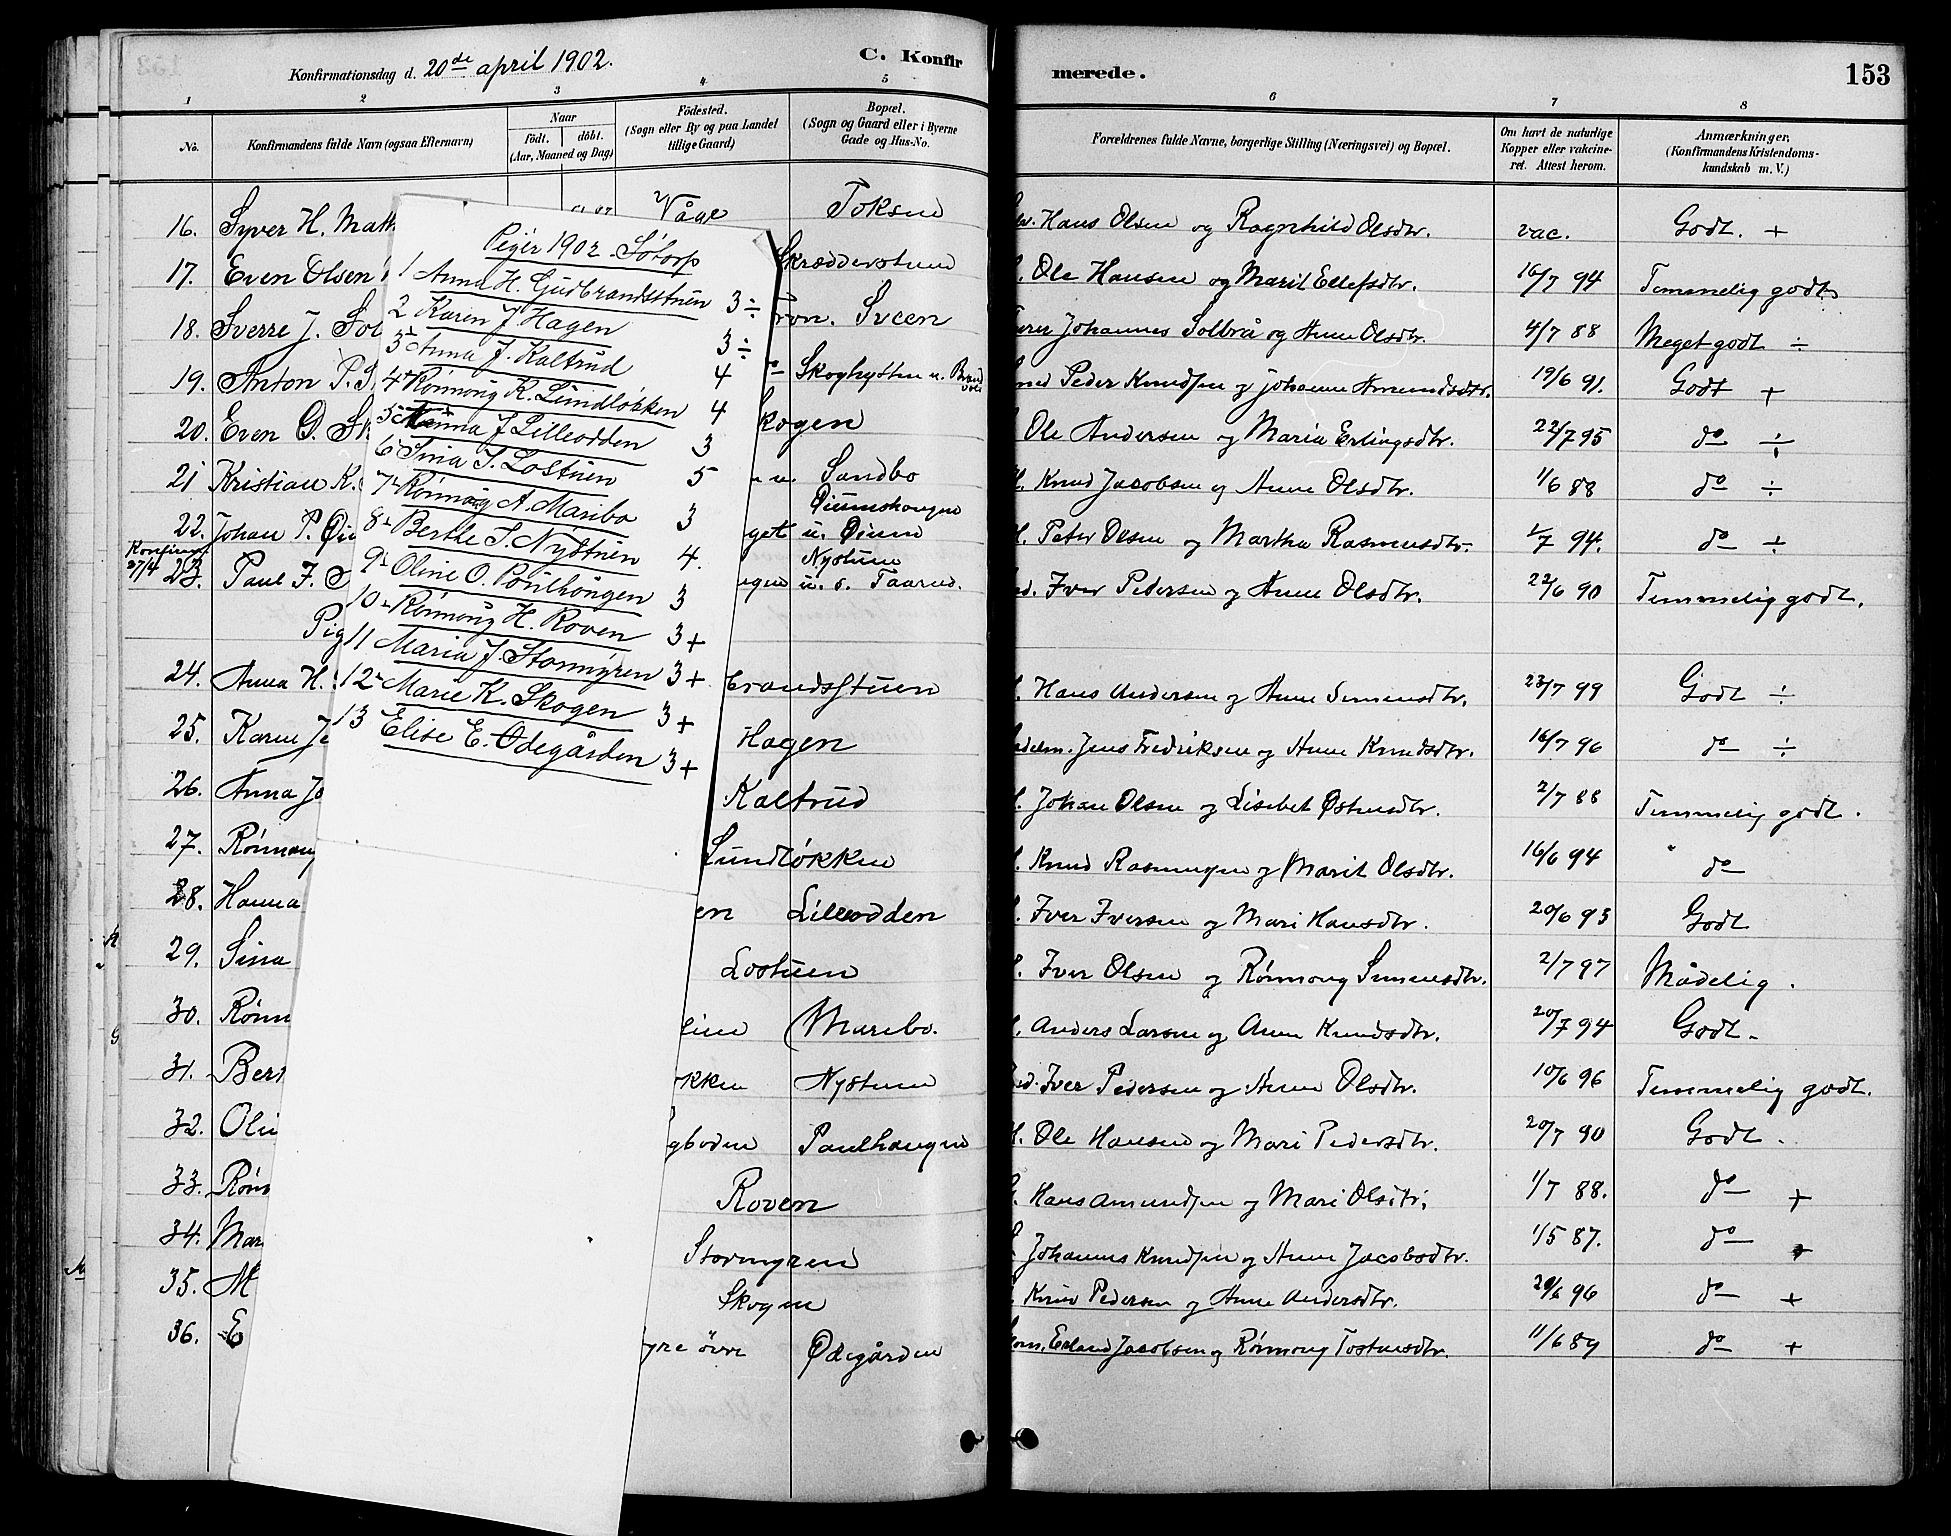 Konfirmationsdag d. 20de april 1902.
C. Konfir
merede.
153
1 2 3 4 5 6 7 8
No.
Konfirmandens fulde Navn (ogsaa Efternavn)
Naar
födt. döbt.
(Aar, Maaned og Dag)
Födested.
(Sogn eller By og paa Landet
tillige Gaard)
Bopæl.
(Sogn og Gaard eller i Byerne
Gade og Hus-No.
Forældrenes fulde Navne, borgerlige Stilling (Næringsvei) og Bopæl.
Om havt de naturlige
Kopper eller vakcine-
ret. Attest herom.
Anmærkninger,
(Konfirmandens Kristendoms-
kundskab m. V.)
16. Syver H. Math Våge Toksen Hans Olsen og Ragnhild Olsdtr. vac. Godt. +
17. Even Olsen Skrædderstuen Ole Hansen og Marit Ellefsdtr. 16/7 94 Temmelig godt
18. Sverre J. Sol Fron. Sveen Johannes Solbrå og Anne Olsdtr. 4/7 88 Meget godt ÷
19. Anton P. S Skoghytten u. Peder Knudsen og Johanne Amundsdtr. 19/6 91. Godt +
20. Even O. Sk kogen Ole Andersen og Maria Erlingsdtr. 22/7 95 do ÷
21 Kristian K. u. Sandbo Knud Jacobsen og Anne Olsdtr. 1/6 88 do ÷
22. Johan P. Øi get Øiumshaugen u. Øium Peter Olsen og Martha Rasmusdtr. 1/7 94. do ÷
Konfirm. 27/4
23. Paul I. ugen Nystuen u. s. Taarud. Iver Pedersen og Anne Olsdtr. 22/6 90 Temmelig godt.
Pig
24. Anna H. brandsstuen Hans Andersen og Anne Simensdtr. 23/7 99 Godt ÷
25. Karen Je Hagen Jens Fredriksen og Anne Knudsdtr. 16/7 96 do ÷
26. Anna Jo Kaltrud Johan Olsen og Lisebet Østensdtr. 2/7 88 Temmelig godt.
27. Rønnaug Lundløkken Knud Rasmussen og Marit Olsdtr. 16/6 94 do
28. Hanna en Lilleodden Iver Iversen og Mari Hansdtr. 20/6 93 Godt
29. Sina Lostuen Iver Olsen og Rønnoug Simensdtr. 2/7 97 Mådelig.
30. Rønn Maribo. Anders Larsen og Anne Knudsdtr. 20/7 94 Godt.
31. Bert økken Nystuen Iver Pedersen og Anne Olsdtr. 10/6 96 Temmelig godt.
32. Olin gboden Paulhaugen Ole Hansen og Mari Pedersdtr. 20/7 90 Godt.
33. Røn Roven Hans Amundsen og Mari Olsdtr. 1/7 88. do +
34. Mar Stormyren Johannes Knudsen og Anne Jacobsdtr. 1/5 87. do +
35. M Skogen Knud Pedersen og Anne Andersdtr. 20/6 96 do +
36. E yre övre Ødegården Erland Jacobsen og Rønnoug Tostensdtr. 11/6 89 do +
Piger 1902. Sötorp
1 Anna H. Gudbrandsstuen 3÷
2 Karen J Hagen 3÷
3 Anna J. Kaltrud 4
4 Rönnoug K. Lundlökken 4
5 Hanna J Lilleodden 3
6 Sina I. Lostuen 5
7 Rönnoug A. Maribo 3
8 Berthe I. Nystuen 4.
9 Oline O. Poulhougen 3
10 Rönnoug H. Roven 3+
11 Maria J. Stormyren 3+
12 Marie K. Skogen 3+
13 Elise E. Ødegården 3+